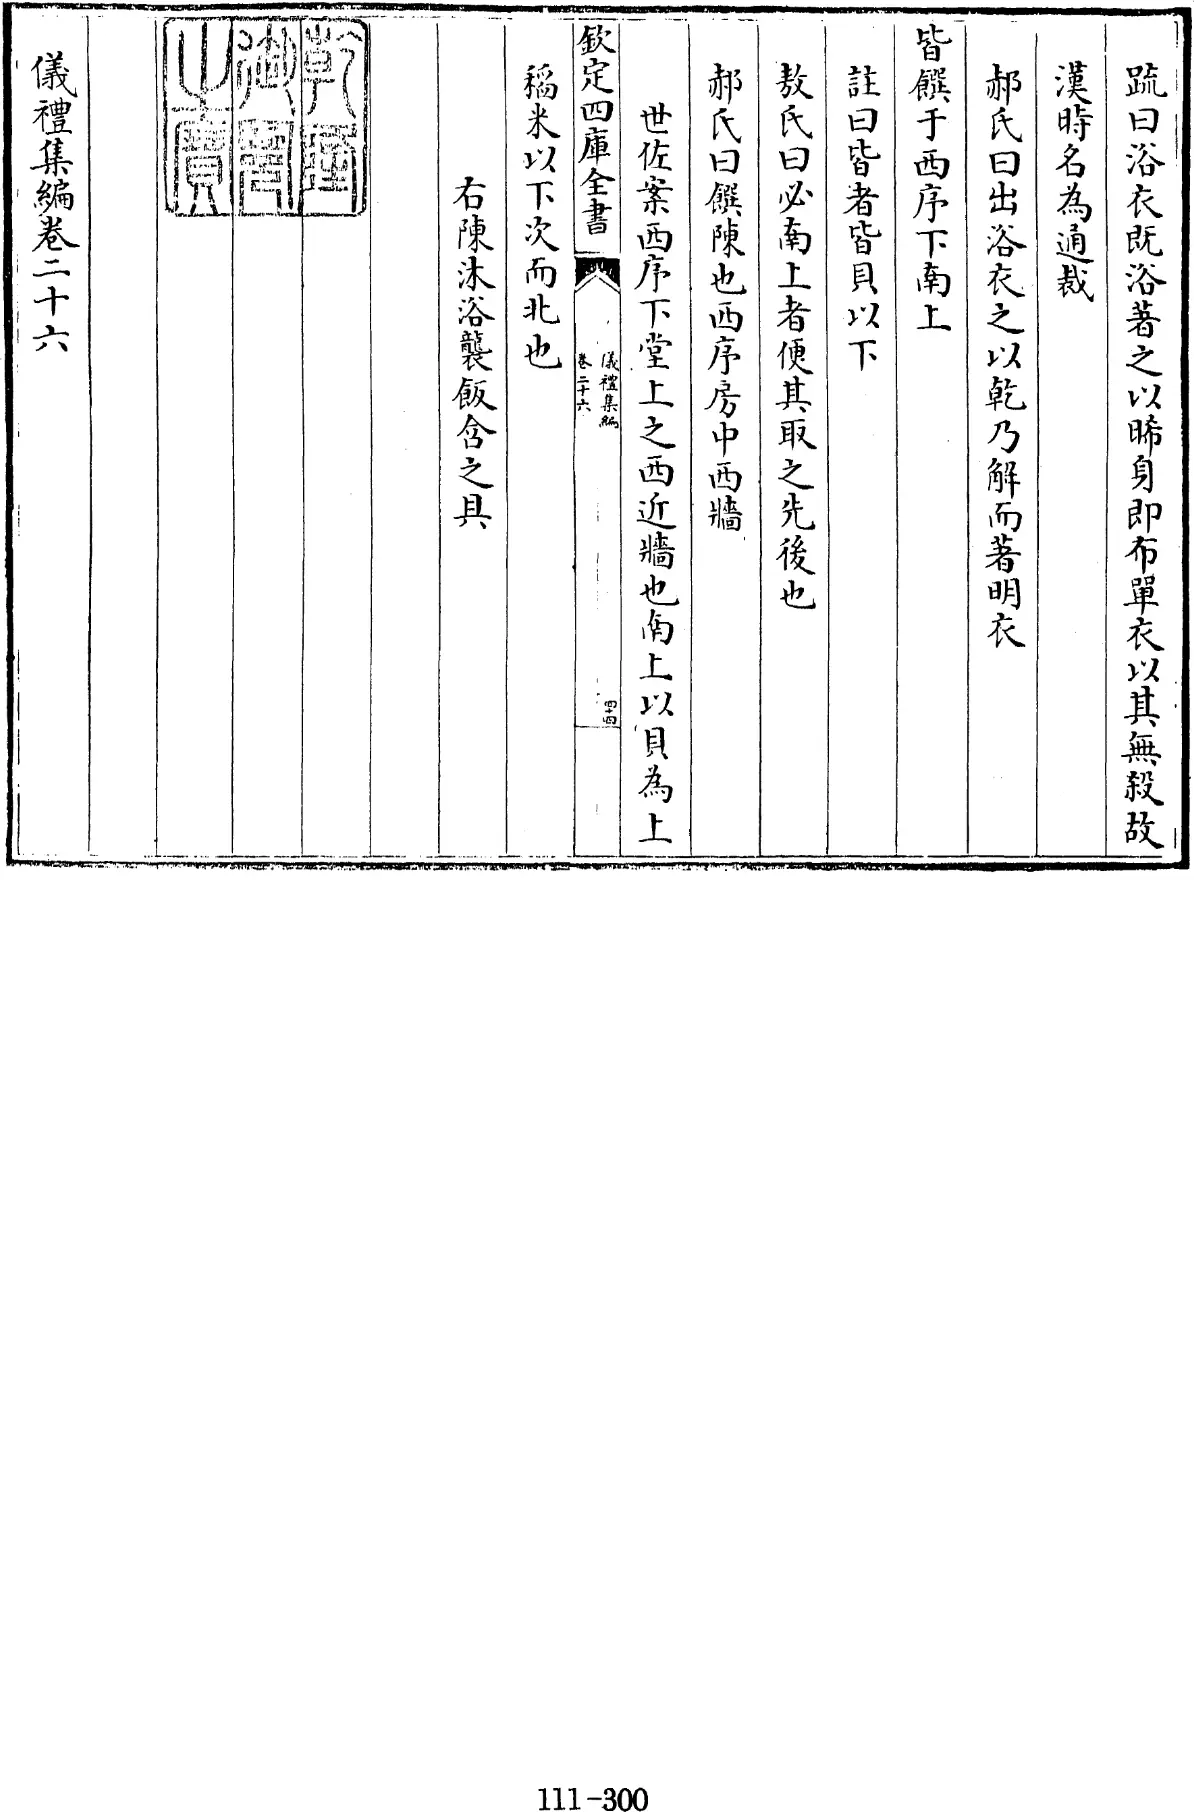 疏曰浴衣既浴著之以晞身即布單衣以其無殺故
漢時名為通裁
郝氏曰出浴衣之以乾乃解而著明衣
皆饌于西序下南上
註曰皆者皆貝以下
敖氏曰必南上者便其取之先後也
郝氏曰饌陳也西序房中西牆
世佐案西序下堂上之西近牆也南上以貝為上
欽定四庫全書
儀禮集編
卷二十六
四十四
稻米以下次而北也
右陳沐浴襲飯含之具
乾隆
御覽
之寶
儀禮集編卷二十六
111-300